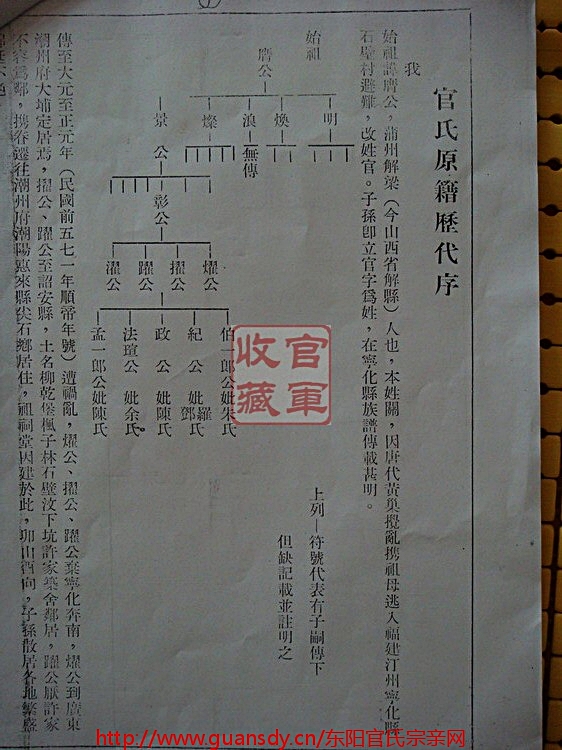 官氏原籍歷代序
我
始祖諱膺公，蒲州解梁（今山西省解縣）人也，本姓關，因唐代黃巢攪亂携祖母逃入福建汀州寧化縣
石壁村避難，改姓官。子孫卽立官字爲姓，在寧化縣族譜傳載甚明。
始祖
膺公
明
煥
浪 無傳
燦
景公
彰公
燿公
擢公
躍公
濯公
伯一郎公妣朱氏
紀公妣羅鄧氏
政公妣陳氏
法瑄公妣余氏
孟一郎公妣陳氏
上列—符號代表有子嗣傳下
但缺記載並註明之
傳至大元至正元年（民國前五七一年順帝年號）遭禍亂，燿公、擢公、躍公棄寧化奔南，燿公到廣東
潮州府大埔定居焉，擢公、躍公至詔安縣，土名柳乾堡楓子林石壁汶下坑許家築舍鄰居，躍公厭許家
不容爲鄰，携眷遷往潮州府潮陽惠來縣尖石鄉居住，祖祠堂因建於此，卯山酉向，子孫散居各地繁盛
官軍
收藏
http://www.guansdy.cn/东阳官氏宗亲网